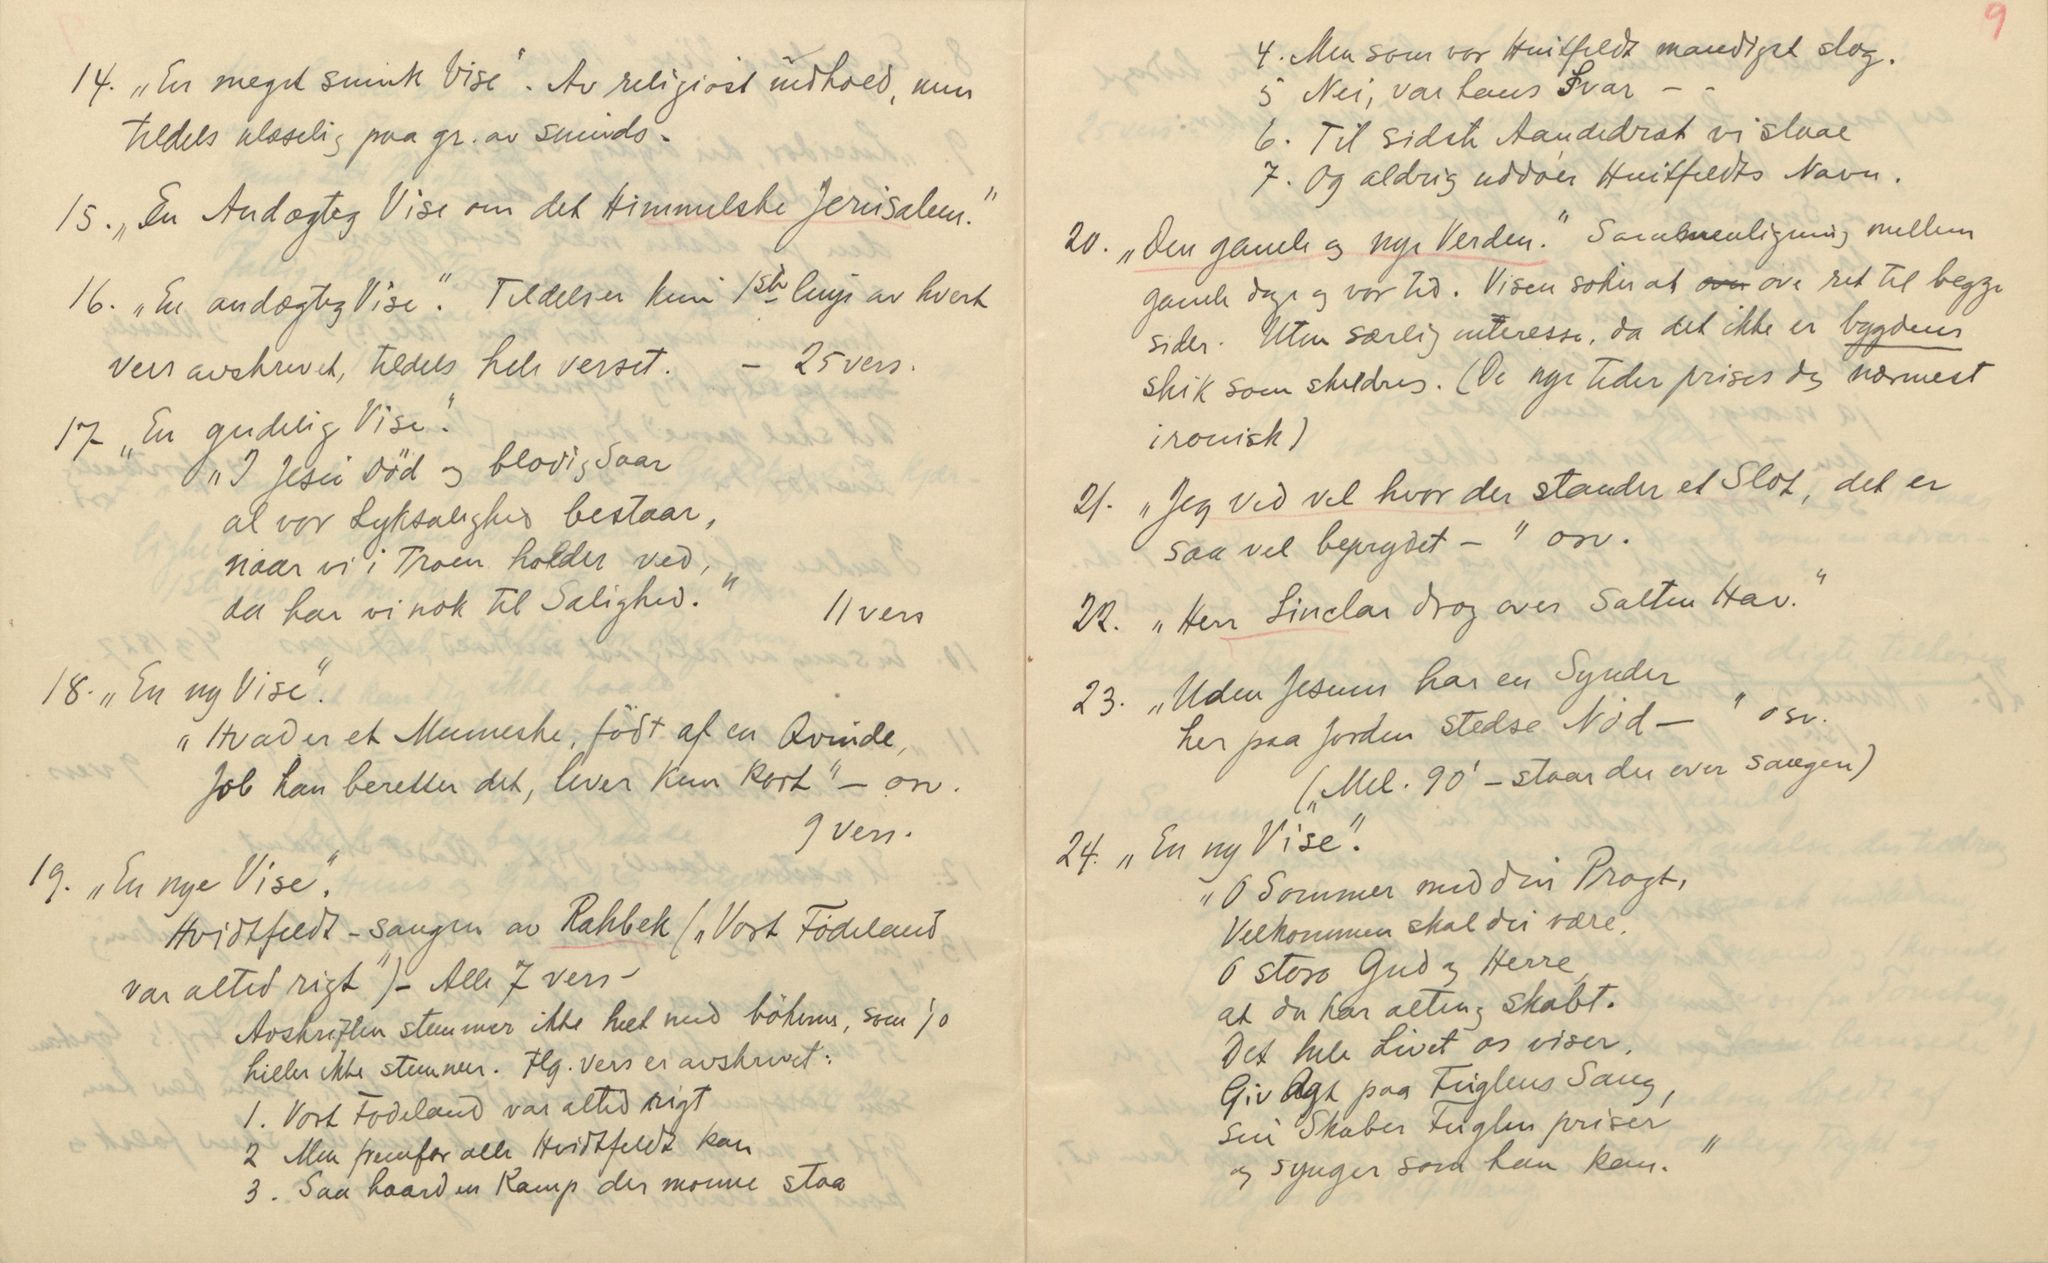 14. „En meget smuk Vise". Av religiøst indhold, men
tildels ulæselig paa gr. av smuds.
15. „En Andægtig Vise om det Himmelske Jerusalem."
16. „En andægtig Vise". Tildels er kun 1ste linje av hvert
vers avskrevet, tildels hele verset. – 25 vers.
17 „En gudelig Vise".
„I Jesu Död og blodig Saar
al vor Lyksalighed bestaar,
naar vi i Troen holder ved,
da har vi nok til Salighed." 11 vers
18. „En ny Vise".
„Hvad er et Menneske, födt af en Qvinde,
Job han beretter det, lever kun kort" – osv.
9 vers.
19. „En nye Vise".
Hvidtfeldt-sangen av Rahbek („Vort Födeland
var altid rigt") – Alle 7 vers –
Avskriften stemmer ikke helt med bökerne, som jo
heller ikke stemmer. Flg. vers er avskrevet:
1. Vort Födeland var altid rigt
2 Men fremfor alle Hvidtfeldt kan
3. Saa haard en Kamp der monne staa
9
4. Men som vor Huitfeldt mandigst slog.
5 Nei, var hans Svar – –
6. Til sidste Aandedræt vi slaae
7. Og aldrig uddöer Huitfeldts Navn.
20. „Den gamle og nye Verden." Sammenligning mellem
gamle dage og vor tid. Visen söker at öve ret til begge
sider. Uten særlig interesse, da det ikke er bygdens
skik som skildres. (De nye tider prises dog nærmest
ironisk)
21. „Jeg ved vel hvor der stander et Slot, det er
saa vel beprydet – " osv.
22. „Herr Sinclar drog over Salten Hav."
23. „Uden Jesum har en Synder
her paa Jorden stedse Nöd – " osv.
(„Mel. 90' – staar der over sangen)
24. „En ny Vise".
„O Sommer med din Pragt,
Velkommen skal du være,
O store Gud og Herre,
at du har alting skabt.
Det hele Livet os viser,
Giv Agt paa Fuglens Sang,
sin Skaber Fuglen priser
og synger som han kan."